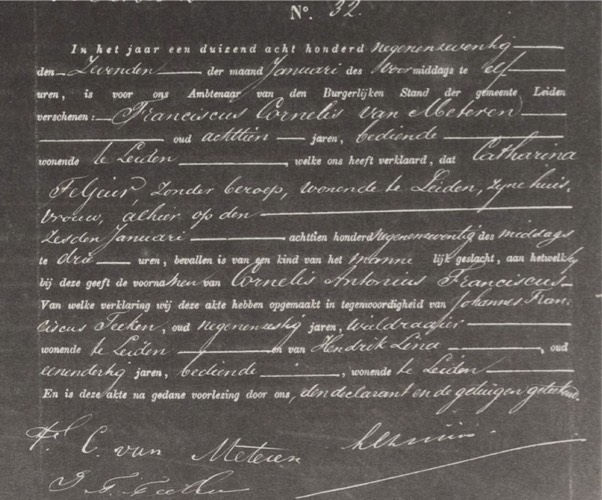 N°. 32.
In het jaar een duizend acht honderd negenenzeventig
den Zevenden der maand Januari des Voormiddags te elf
uren, is voor ons Ambtenaar van den Burgerlijken Stand der gemeente Leiden
verschenen: Franciscus Cornelis van Meteren
oud achttien jaren, bediende
wonende te Leiden, welke ons heeft verklaard, dat Catharina
Feljeur, zonder beroep, wonende te Leiden, zyne huis,
vrouw, alhier op den
zesden Januari achttien honderd negenenzeventig des middags
te drie uren, bevallen is van een kind van het manne lijk geslacht, aan hetwelk hij
bij deze geeft de voornamen van Cornelis Antonius Franciscus
Van welke verklaring wij deze akte hebben opgemaakt in tegenwoordigheid van Johannes Fran-
ciscus Teeken, oud negenenzestig jaren,
wonende te Leiden en van Hendrik Lena, oud
eenendertig jaren, bediende, wonende te Leiden
En is deze akte na gedane voorlezing door ons, den declarant en de getuigen geteekend.
F. C. van Meteren